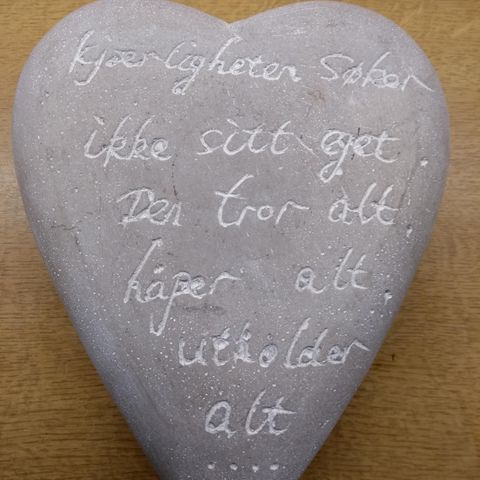 kjærligheten søker
ikke sitt eget.
Den tror alt,
håper alt,
utholder
alt
....